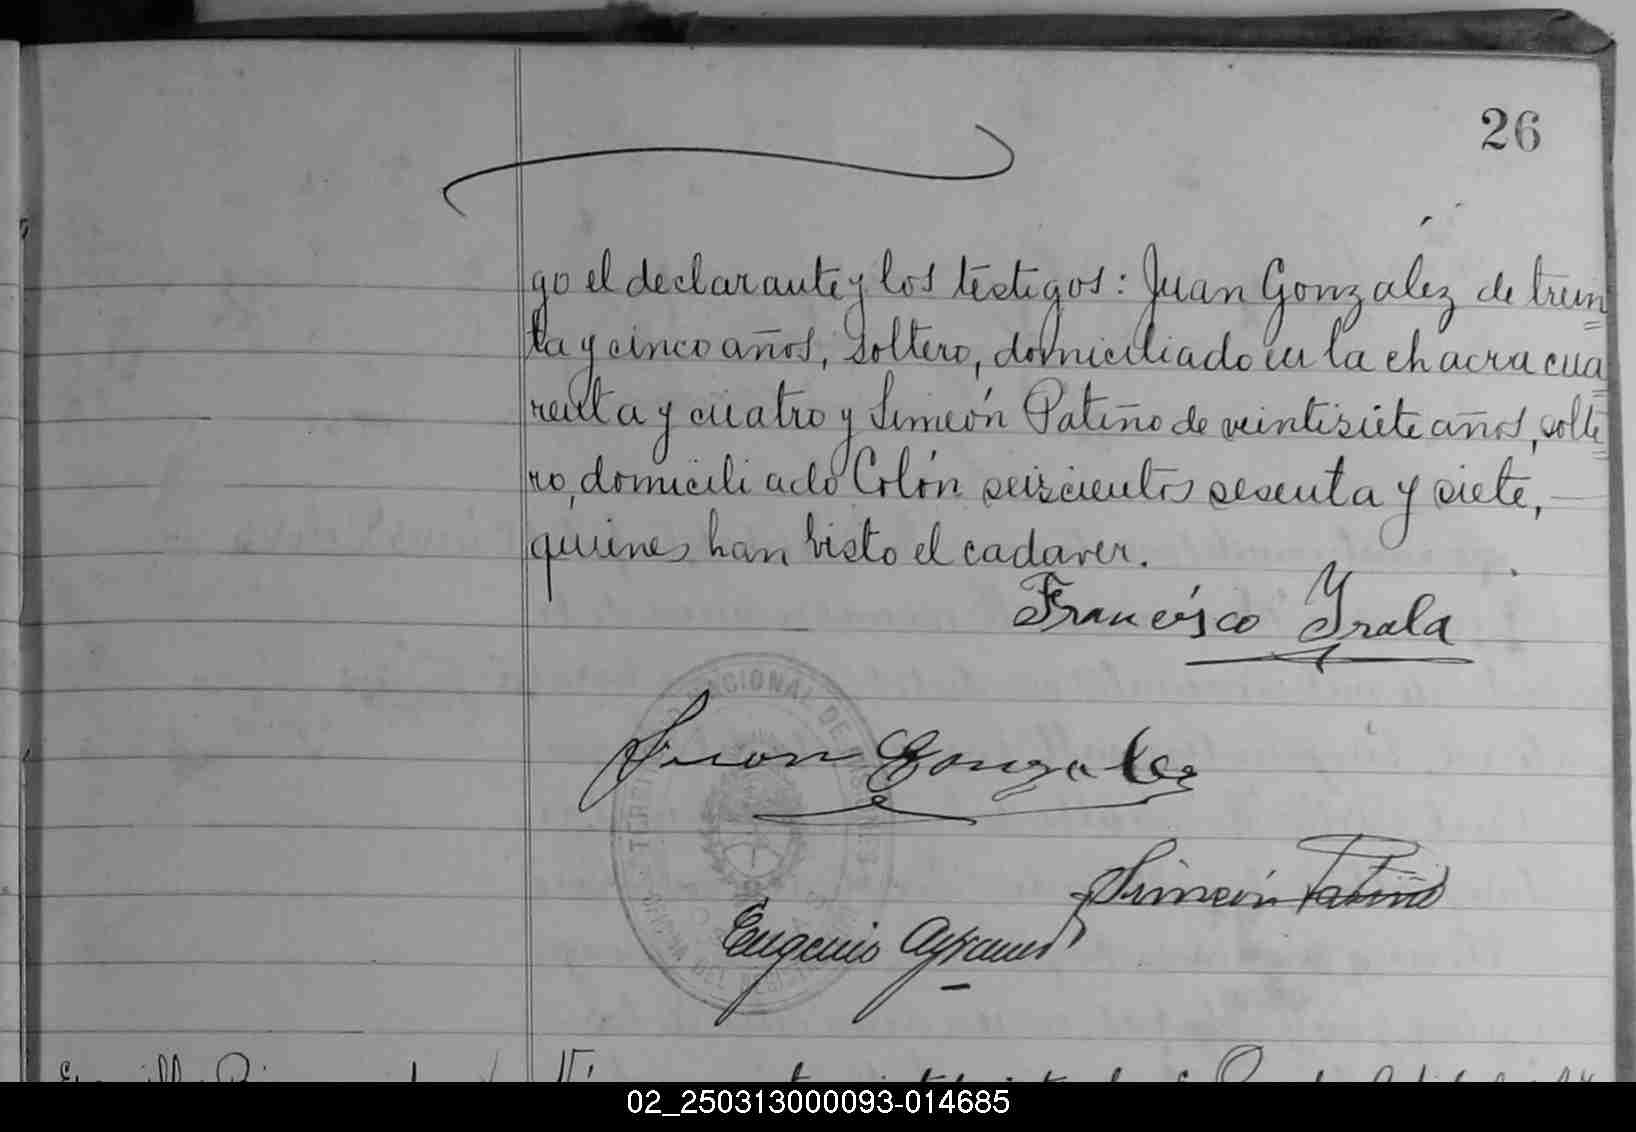 26
go el declarante y los testigos: Juan González de trein
ta y cinco años, soltero, domiciliado en la chacra cua
renta y cuatro y Simeón Patiño de veintisiete años, solte
ro, domiciliado Colón seiscientos sesenta y siete,
quienes han visto el cadaver.
Francisco Yrala
Juan Gonzalez
Simeón Patiño
Eugenio
NACIONAL DE MISIONES
02_250313000093-014685